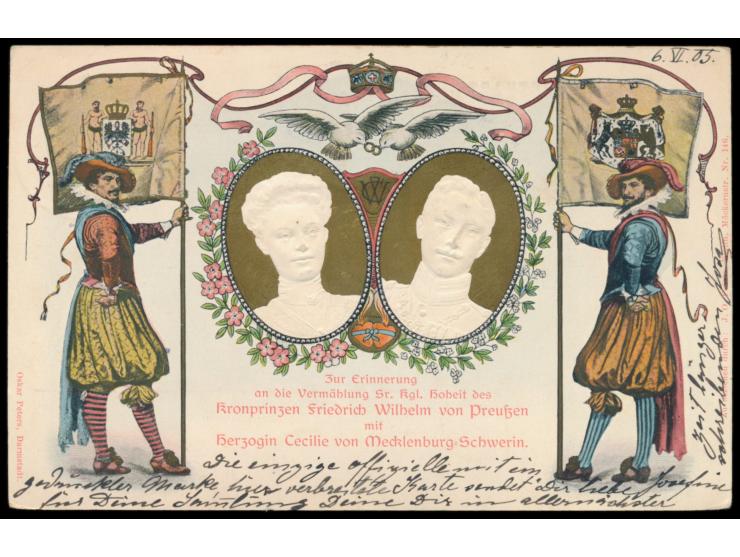 6. VI. 05.
Zur Erinnerung
an die Vermählung Sr. Kgl. Hoheit des
Kronprinzen Friedrich Wilhelm von Preußen
mit
Herzogin Cecilie von Mecklenburg-Schwerin.
Oskar Peters, Darmstadt.
Nr. 146.
Die einzige offizielle mit ein
gedruckter Marke hier verbreitete Karte sendet Dir liebe Josefine
für Deine Samlung Deine Dir in allernächster
Zeit länger